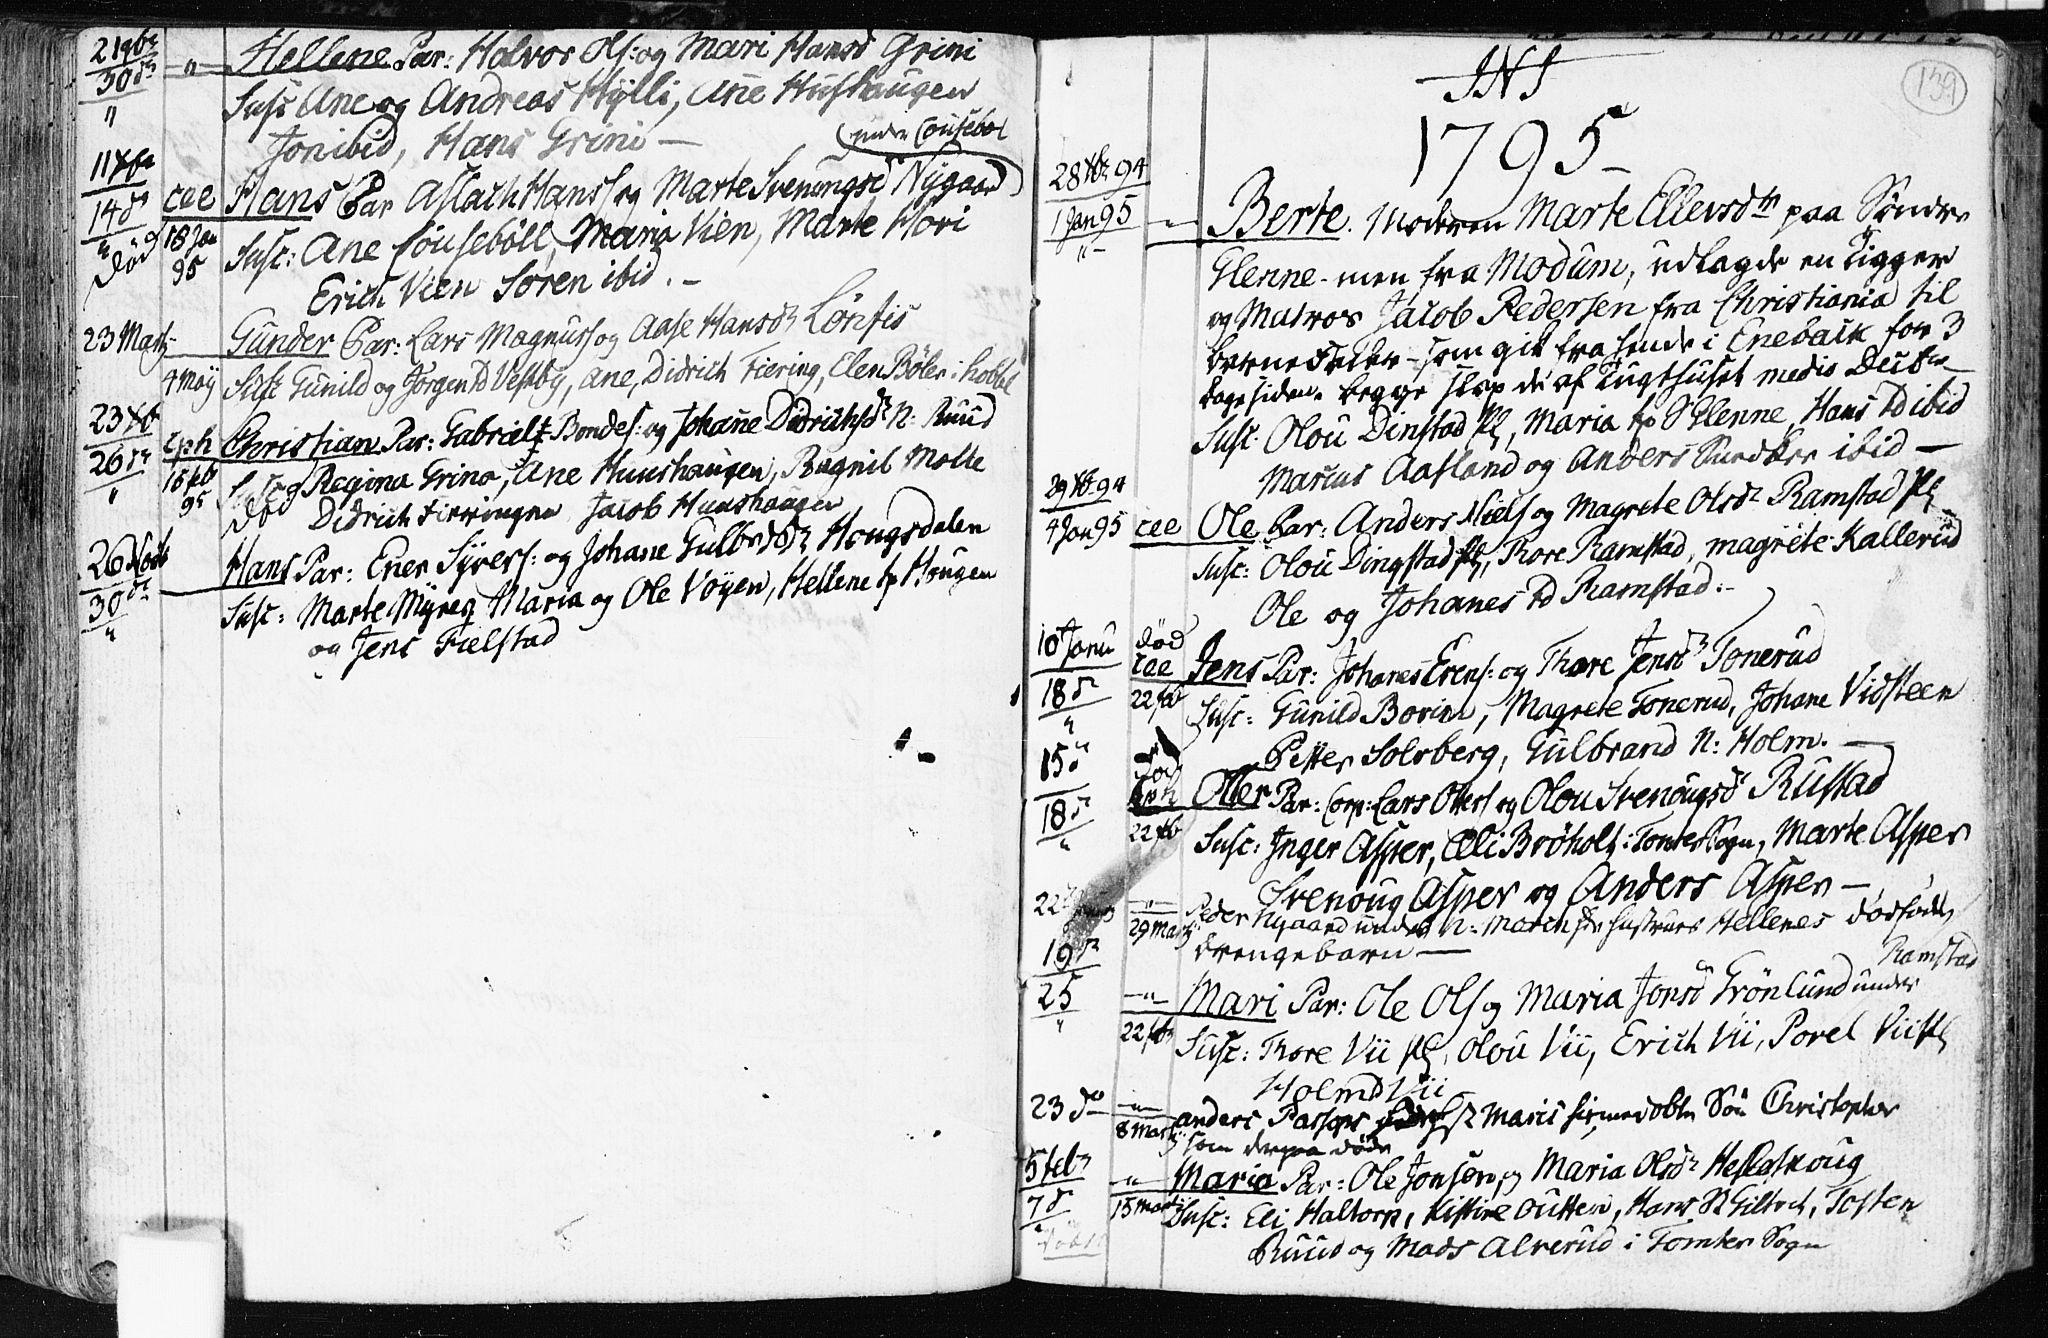 21 9br
30 dn
"
" Hellene Par: Halvor Ols: og Mari Hansd Grini
Susc Ane og Andreas Hylli, Ane Hushaugen
Jon ibid, Hans Grini —
under Cousebøl
11 Xbr
14 dn
"
Død
18 Jan
95
cee Hans Par Aslach Hans: og Marte Svenungsd Nygaard
Susc: Ane Cousebøll, Maria Vien, Marte Hovi
Erich Vien Søren ibid. –
23 Martz
4 May
Gunder Par: Lars Magnus: og Aase Hansdr Løntis
Susc Gunild og Jørgen td Vestby, Ane, Didrich Fiering, Elen Bøler i Hobbøl
23 Xbr
26 dn
"
eph
15 feb
95
død
Christian Par: Gabriel Bondes: og Johane Didrichsdr N: Ruud
Susc Regina Grina, Ane Hunshaugen, Ragnil Molte
Didrich Fierringen Jacob Hunshaugen
26
30 dn
"
Hans Par: Ener Syvers: og Johane Gulbrdsdr Hougsdalen
Susc: Marte Myrer, Maria og Ole Vøyen, Hellene Hougen
og Jens Fielstad
139
INI
1795 –
28 Xbr 94
1 Jan 95
"–
Berte. Moderen Marte Ellevsdtr paa Søndre
Glenne – men fra Modum, udlagde en Tigger
og Matros Jacob Pedersen fra Christiania til
barnefader – som gik fra hende i Enebak for 3
dage siden. begge slap de af Tugthuset medio Decbr –
Susc: Olou Dinstad pl, Maria Glenne, Hans td ibid
Marcus Aasland og Anders ibid —
29 Xbr 94
4 Jan 95
cee Ole Par: Anders Niels: og Magrete Olsdr Ramstad pl
Susc: Olou Dingstad pl, Thore Ramstad, Magrete Kallerud
Ole og Johanes td Ramstad. –
10 Janu
18 dn
"
død
cee
22 feb
Jens Par: Johanes Evens: og Thore Jensdr Tonerud
Susc: Gunild Borim, Magrete Tonerud, Johane Vidsteen
Petter Solvberg, Gulbrand N: Holm. —
15 d
18 dn
"
eph
22 feb
Oller Par: Corp: Lars Olless og Olou Svenougsd Rustad
Susc: Inger Asper, Eli Brøholt i Tomter Sogn, Marte Asper
Svenoug Asper og Anders Asper —
22
29 Martz
Peder Nygaard under N: Moren hustrues Hellenes dødfødde
drengebarn —
19 dn
25
"
22 feb
Ramstad
Mari Par: Ole Ols og Maria Jonsd Grønlund under
Susc: Thore Vii pl, Olou Vii, Erich Vii, Povel Vii pl
Holmd Vii
23 do
8 Martz
anders Maris hiemedøbte Søn Christopher
som derpaa døde
5 feb
7 d
"
15 Martz
Maria Par: Ole Jonsen og Maria Olsdr Hestaskoug
Susc: Eli Haltorp, Kistine Outten, Hans Tosten
Ruud og Mads Alverud i Tomter Sogn